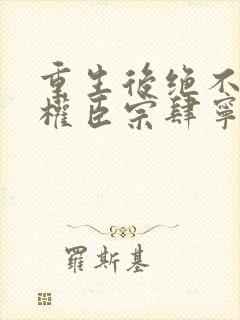 重生後绝不
權臣宗肆寧
羅斯基